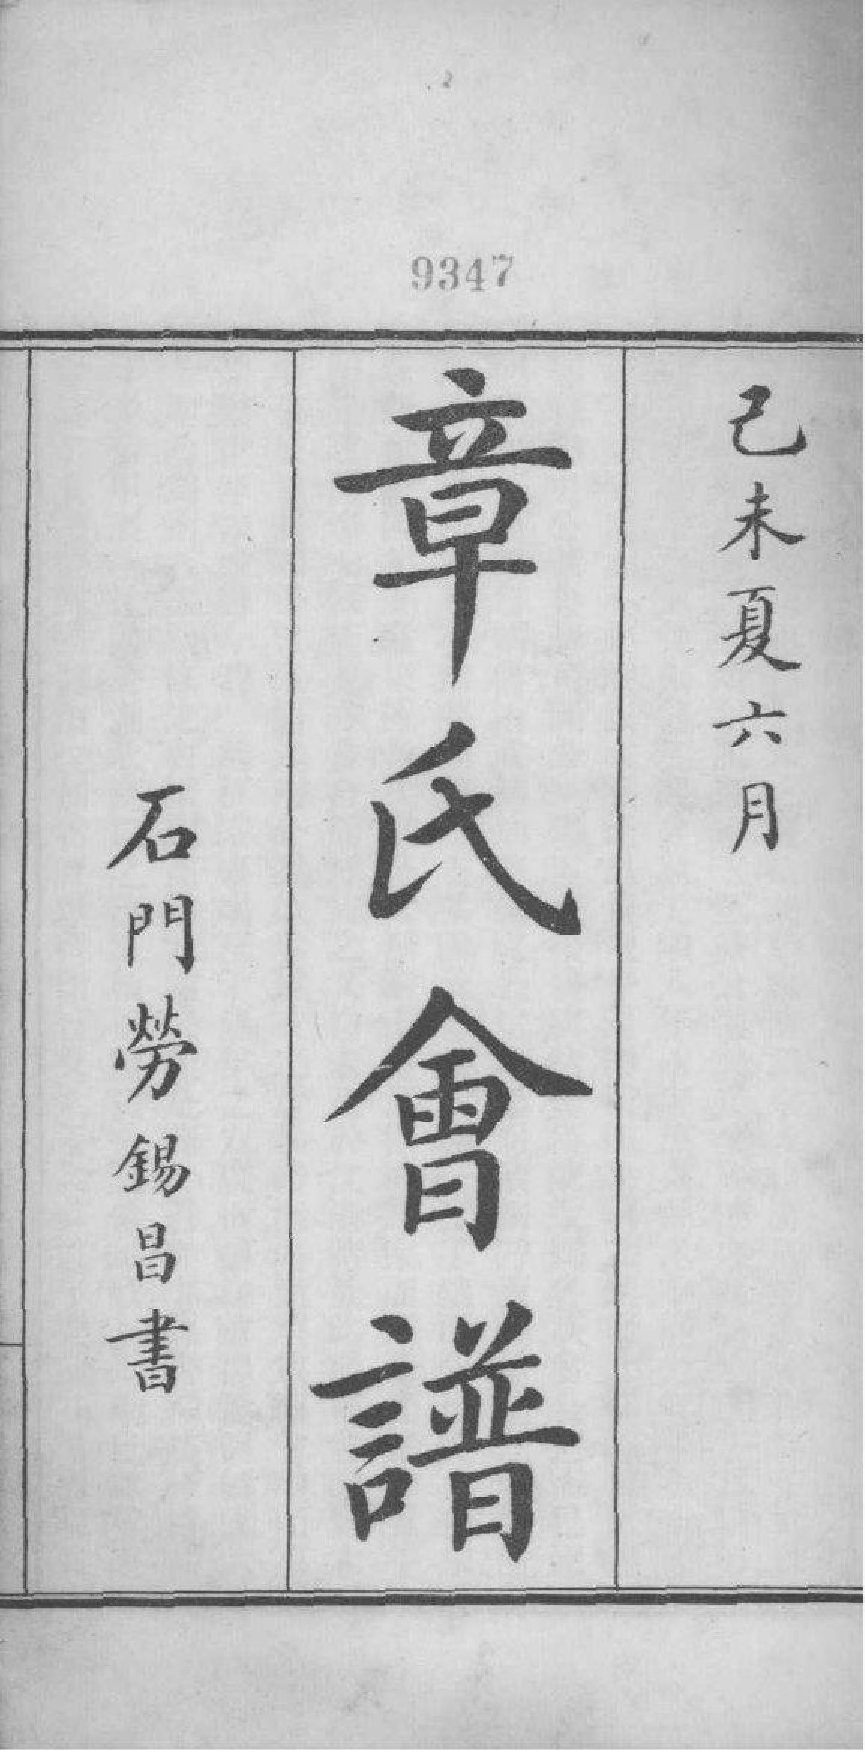 9347
己未夏六月
章氏會譜
石門勞錫昌書